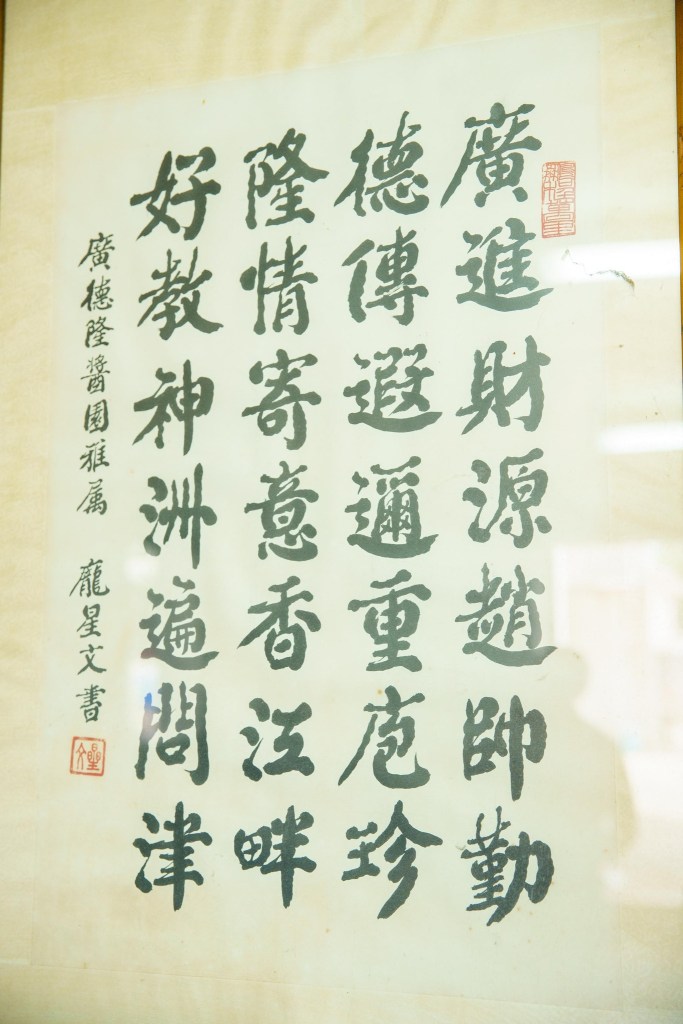 廣進財源趙帥勤
德傳遐邇重庖珍
隆情寄意香江畔
好教神洲遍問津
廣德隆醬園雅属
龐星文書